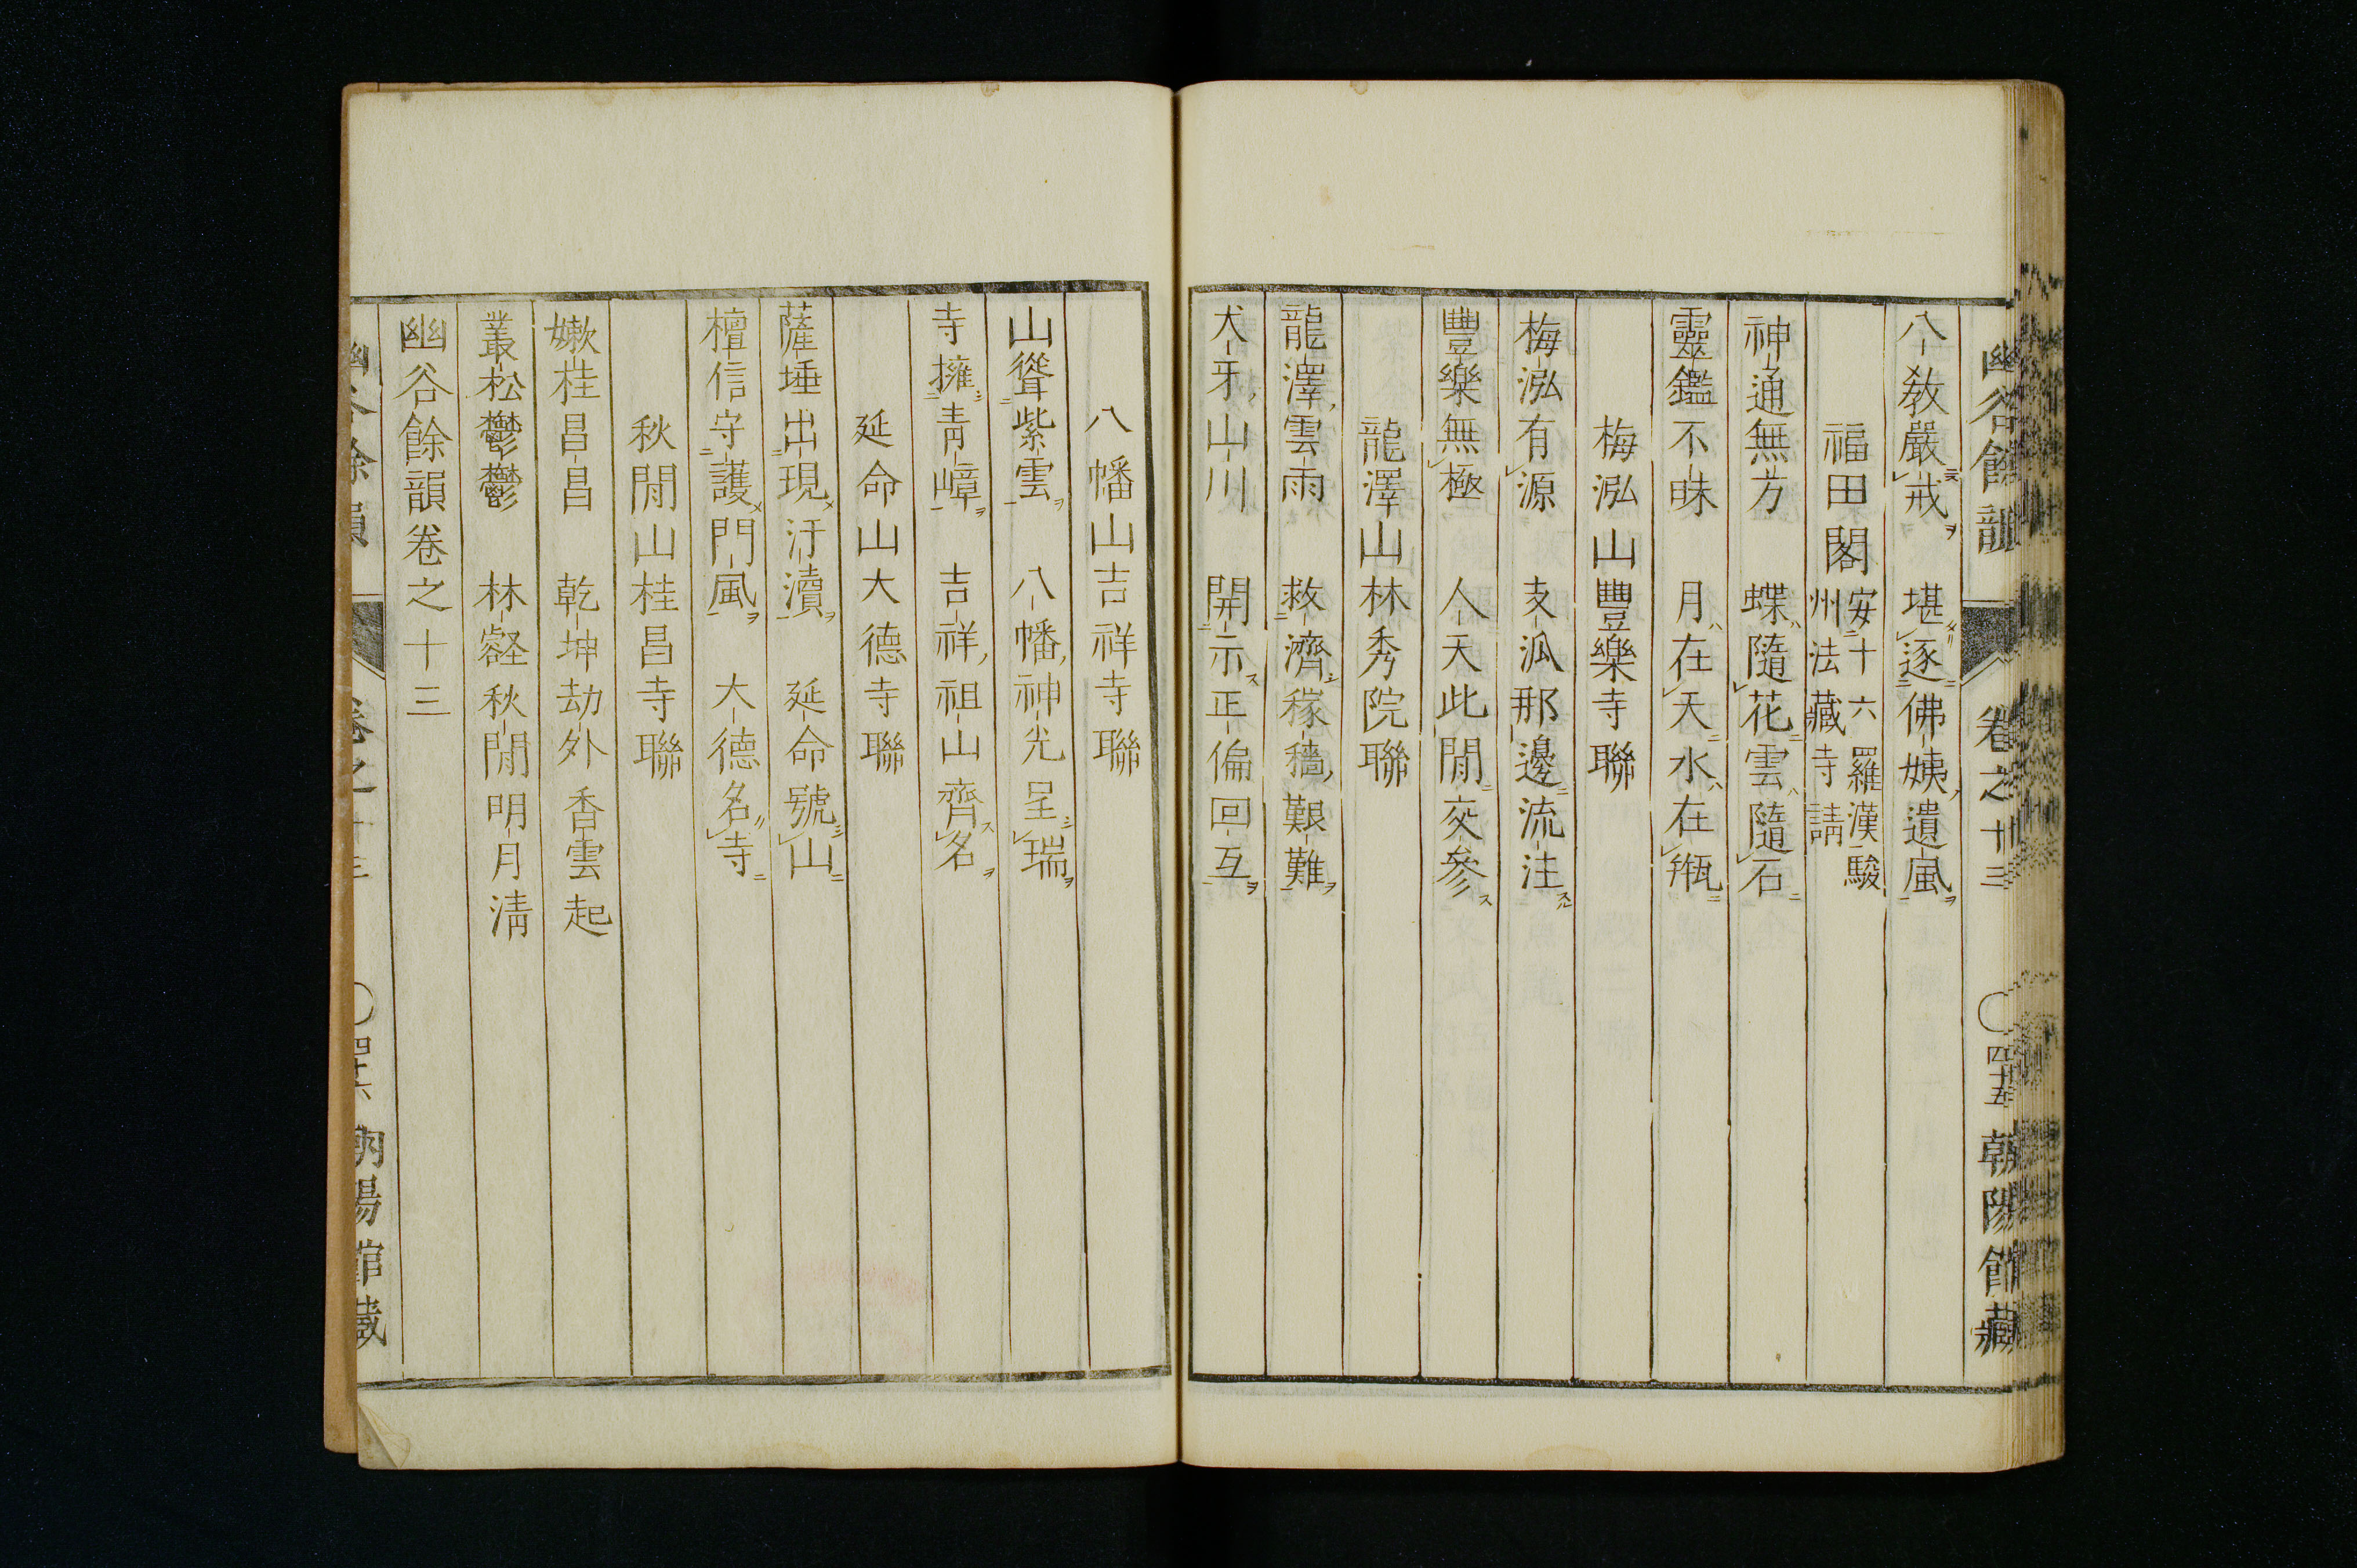 幽谷餘韻 卷之十三 〇四十五 朝陽館藏
八敎嚴戒 堪逐佛姨遺風
福田閣 安十六羅漢駿州法藏寺請
神通無方 蝶隨花雲隨石
靈鑑不昧 月在天水在瓶
梅泓山豐樂寺聯
梅泓有源 支派那邊流注
豐樂無極 人天此閒交參
龍澤山林秀院聯
龍澤雲雨 救濟稼穡艱難
犬牙山川 開示正偏回互
八幡山吉祥寺聯
山聳紫雲 八幡神光呈瑞
寺擁靑嶂 吉祥祖山齊名
延命山大德寺聯
薩埵出現汙瀆 延命號山
檀信守護門風 大德名寺
秋閒山桂昌寺聯
嫩桂昌昌 乾坤劫外香雲起
叢松鬱鬱 林壑秋閒明月淸
幽谷餘韻卷之十三
幽谷餘韻 卷之十三 〇四十六 朝陽館藏